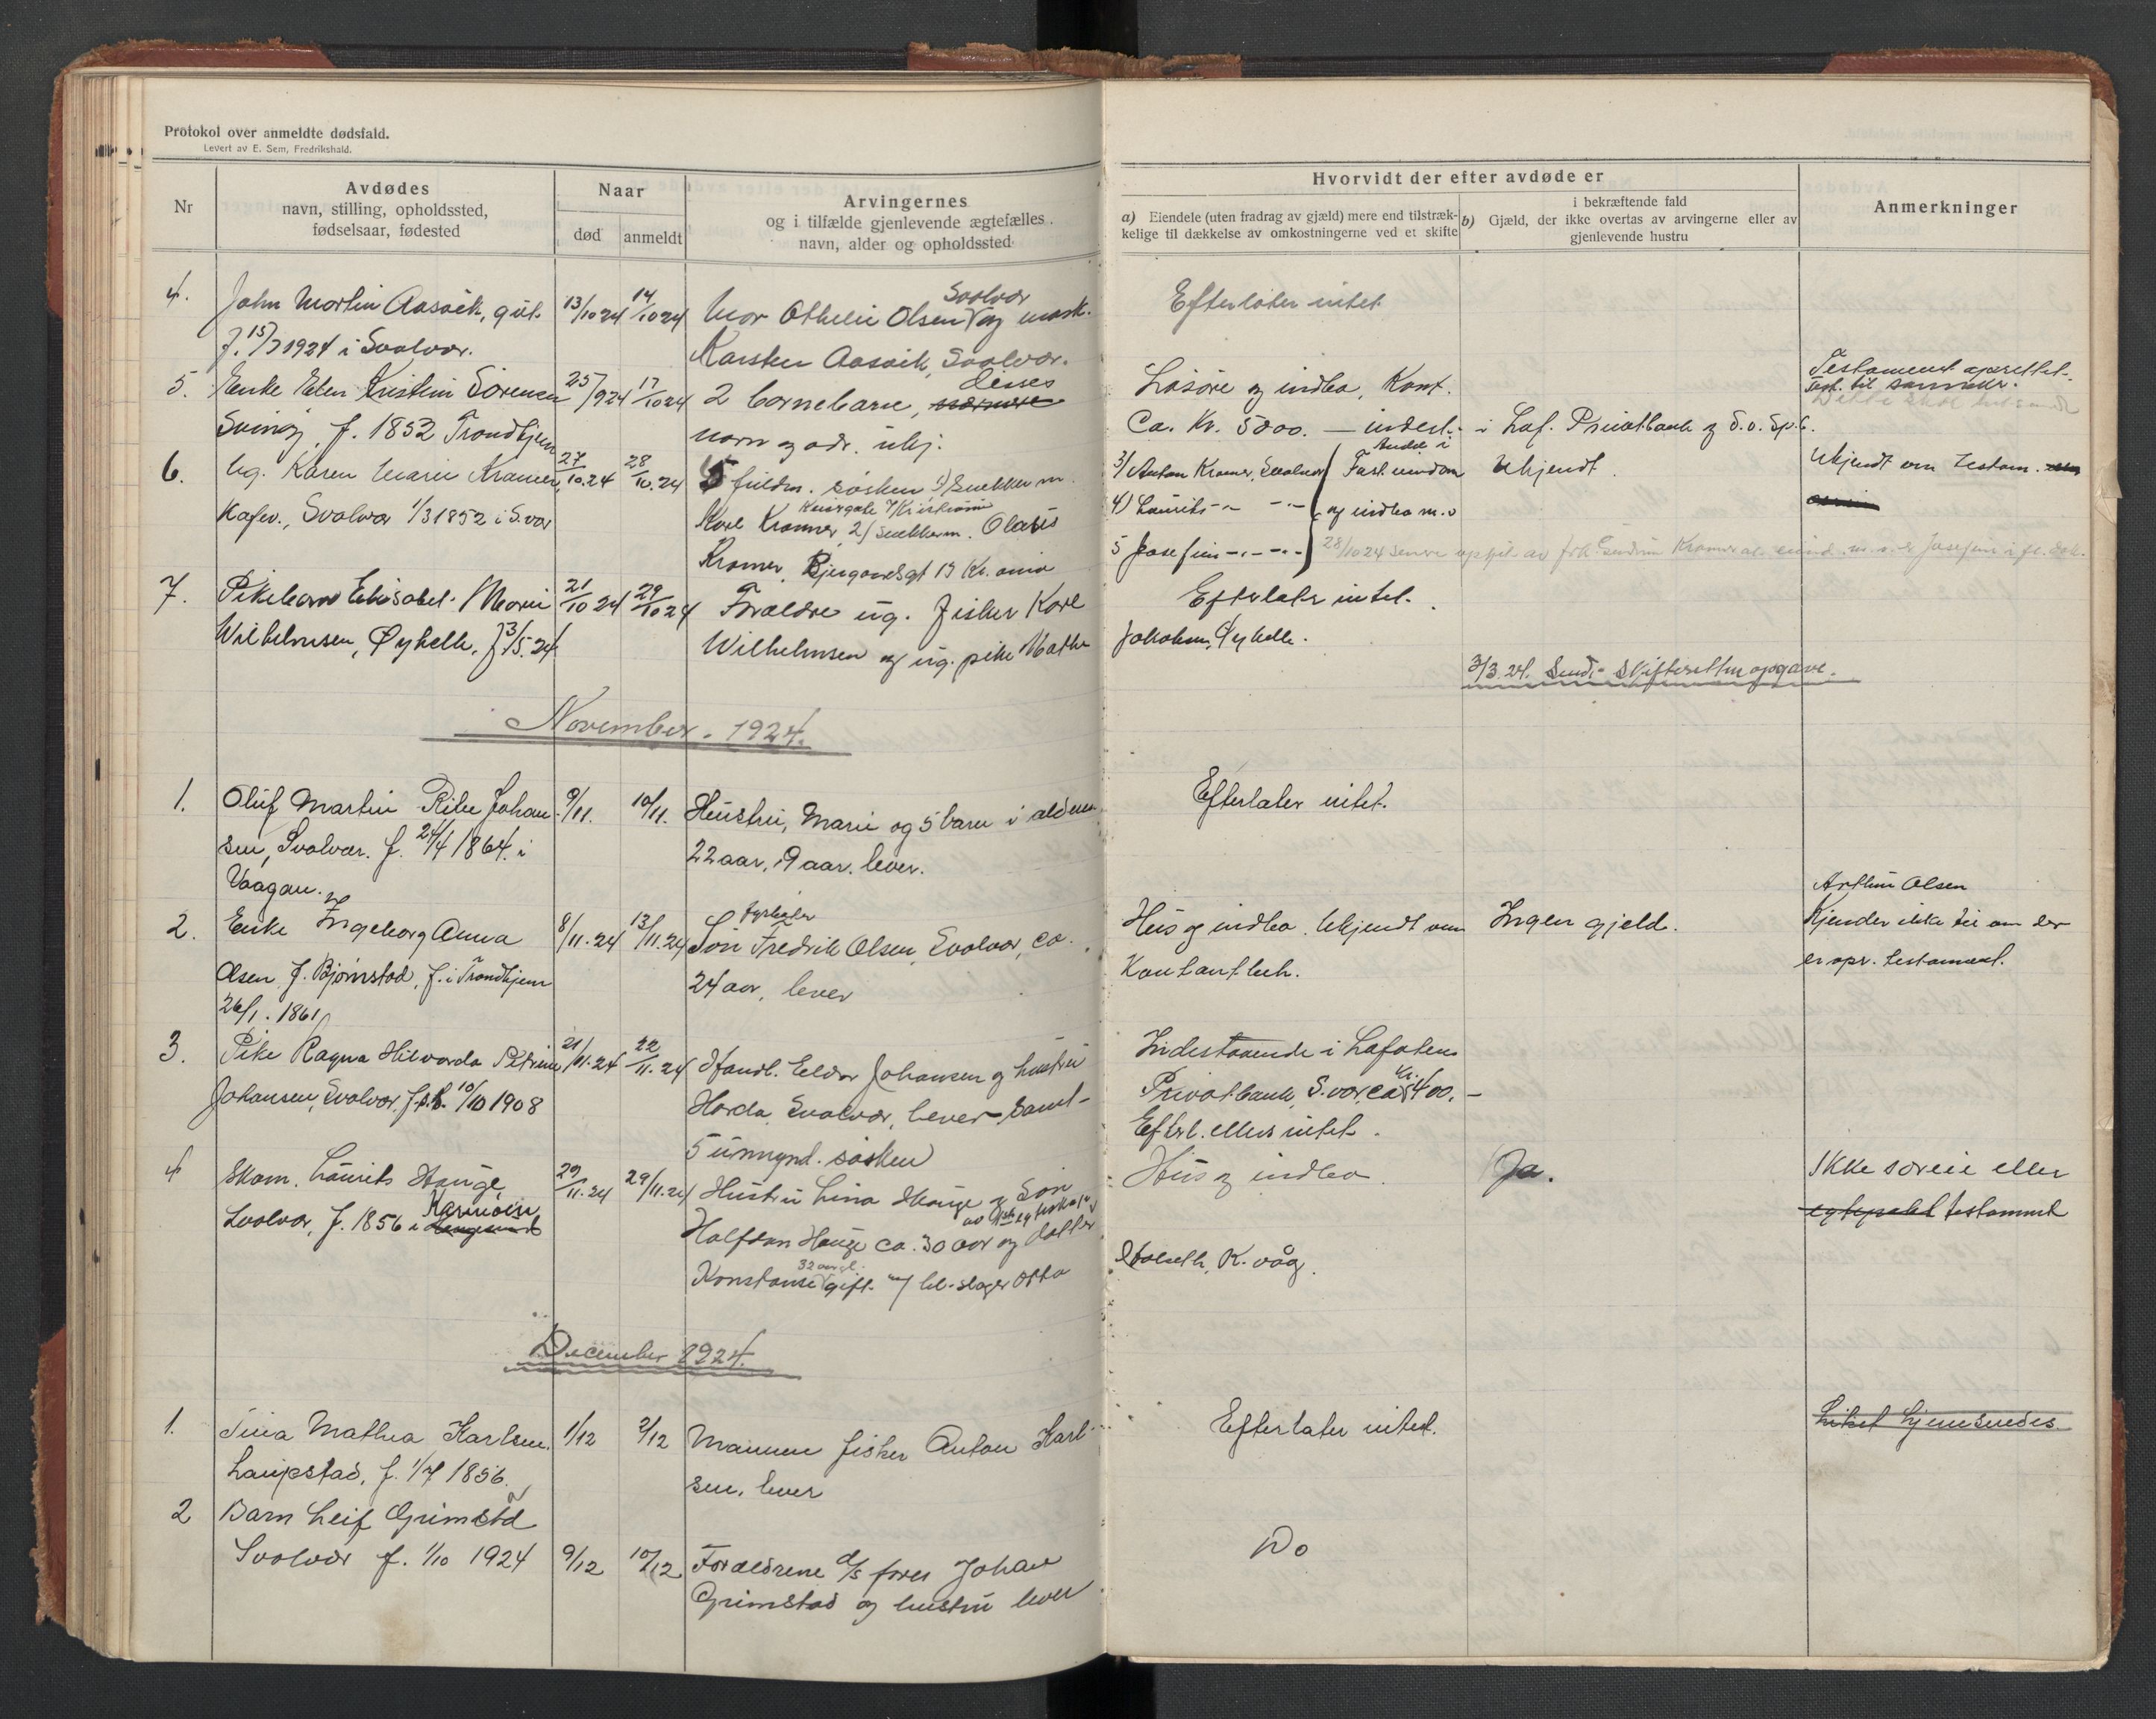 Protokol over anmeldte dødsfald.
Levert av E. Sem, Fredrikshald.
Nr
Avdødes
navn, stilling, opholdssted,
fødselsaar, fødested
Naar
død
anmeldt
Arvingernes
og i tilfælde gjenlevende ægtefælles
navn, alder og opholdssted
Hvorvidt der efter avdøde er
a) Eiendele (uten fradrag av gjæld) mere end tilstræk-
kelige til dækkelse av omkostningerne ved et skifte
i bekræftende fald
b) Gjæld, der ikke overtas av arvingerne eller av
gjenlevende hustru
Anmerkninger
4. John Martin Aasvik, gut. 13/10 24 14/10 24 Mor Othelie Olsen Svolvær og mask. Efterlater intet
f. 15/7 1924 i Svolvær. Karsten Aasvik, Svolvær.
5. Enke Elen Kristin Sörensen 25/9 24 17/10 24 2 barnebarn, disses Lösöre og indbo, Kont. Testament oprettet.
Svinöy, f. 1852 Trondhjem navn og adr. ukj. Ca. Kr. 5000. — indest. i Lof. Privatbank og S.v. Sp.b.
6. Ug. Karen Marie Kramer, 27/10.24 28/10.24 5 fuldm. søsken 1) Snekkerm. 3/ Anton Kramer, Svolvær Andel i Fast eiendom Ukjendt. Ukjendt om testam.
Kafev., Svolvær 1/3 1852 i S.vær Karl Kramer, 2/ snekkerm. Olaus 4) Laurits -"- -"- og indbo m.v
Kramer, Bjergaardsgt 13 Kr.ania 5 Josefine -"- -"- 28/10 24
7. Pikebarn Elisabet Marie 21/10 24 29/10 24 Forældre ug. fisker Karl Efterlater intet.
Wilhelmsen, Øyhelle, f 3/5.24 Wilhelmsen og ug. pike Mathe Jakobsen, Øyhelle.
3/3.24. Sendt skifteretten opgave.
November. 1924.
1. Oluf Martin Ribe Johan- 9/11. 10/11. Hustru, Marie og 5 barn i alderen Efterlater intet.
sen, Svolvær. f. 24/4 1864. i 22 aar, 19 aar. lever.
Vaagan.
2. Enke Ingeborg Anna 8/11.24 13/11.24 Søn fyrbøter Fredrik Olsen, Svolvær, ca. Hus og indbo. Ukjendt om Ingen gjeld. Arthur Olsen
Olsen f. Bjørnstad, f. i Trondhjem 24 aar, lever Kontantbeh. Kjender ikke til om der
26/1. 1861 er opr. testament.
3. Pike Ragna Hilvarda Petrine 21/11.24 22/11.24 Handl. Eldor Johansen og hustru Indestaaende i Lofotens
Johansen, Svolvær, f.s.s. 10/10 1908 Horda, Svolvær, lever - samt - Privatbank, S.vær, ca Kr. 400.-
5 umynd. søsken Efterl. ellers intet.
4 Skom. Laurits Hauge, 29/11.24 29/11.24 Hustru Lina Hauge og Søn Hus og indbo. Ja. Ikke særeie eller
Svolvær, f. 1856 i Karmöen Halfdan Hauge ca. 30 aar og datter testament
Konstanse 32 aar gl. gift m/ bl.slager Otto Holseth, K.våg.
December 1924.
1. Tina Mathea Karlsen, 1/12 2/12 Mannen fisker Anton Karl- Efterlater intet. Liket hjemsendes.
Laupstad, f. 1/7 1856. sen, lever
2 Barn Leif Grimstad
Svolvær f. 1/10 1924 9/12 10/12 Forældrene d/s fører Johan Do
Grimstad og hustru lever